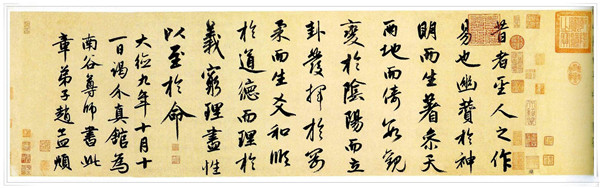 昔者聖人之作
易也幽贊於神
明而生蓍叅天
兩地而倚數觀
變於陰陽而立
卦發揮於剛
柔而生爻和順
於道德而理於
義窮理盡性
以至於命
大德九年十月十
一日謁介真館為
南谷尊師書此
章弟子趙孟頫